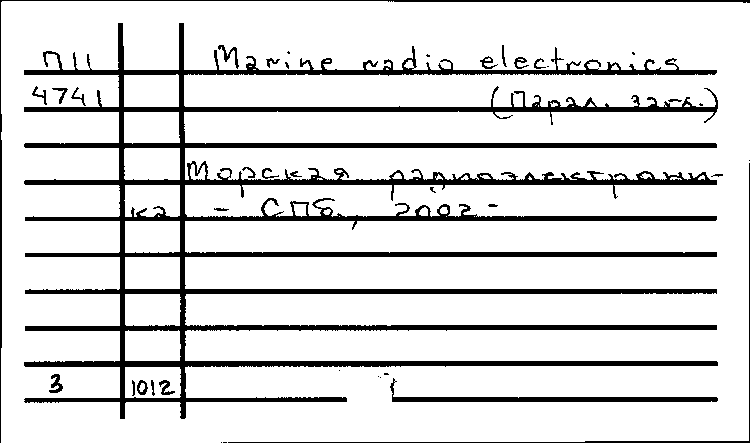 П11 Marine radio electronics
4741 (Парал. загл.)
Морская радиоэлектрони-
ка. - СПб., 2002 -
3 1012